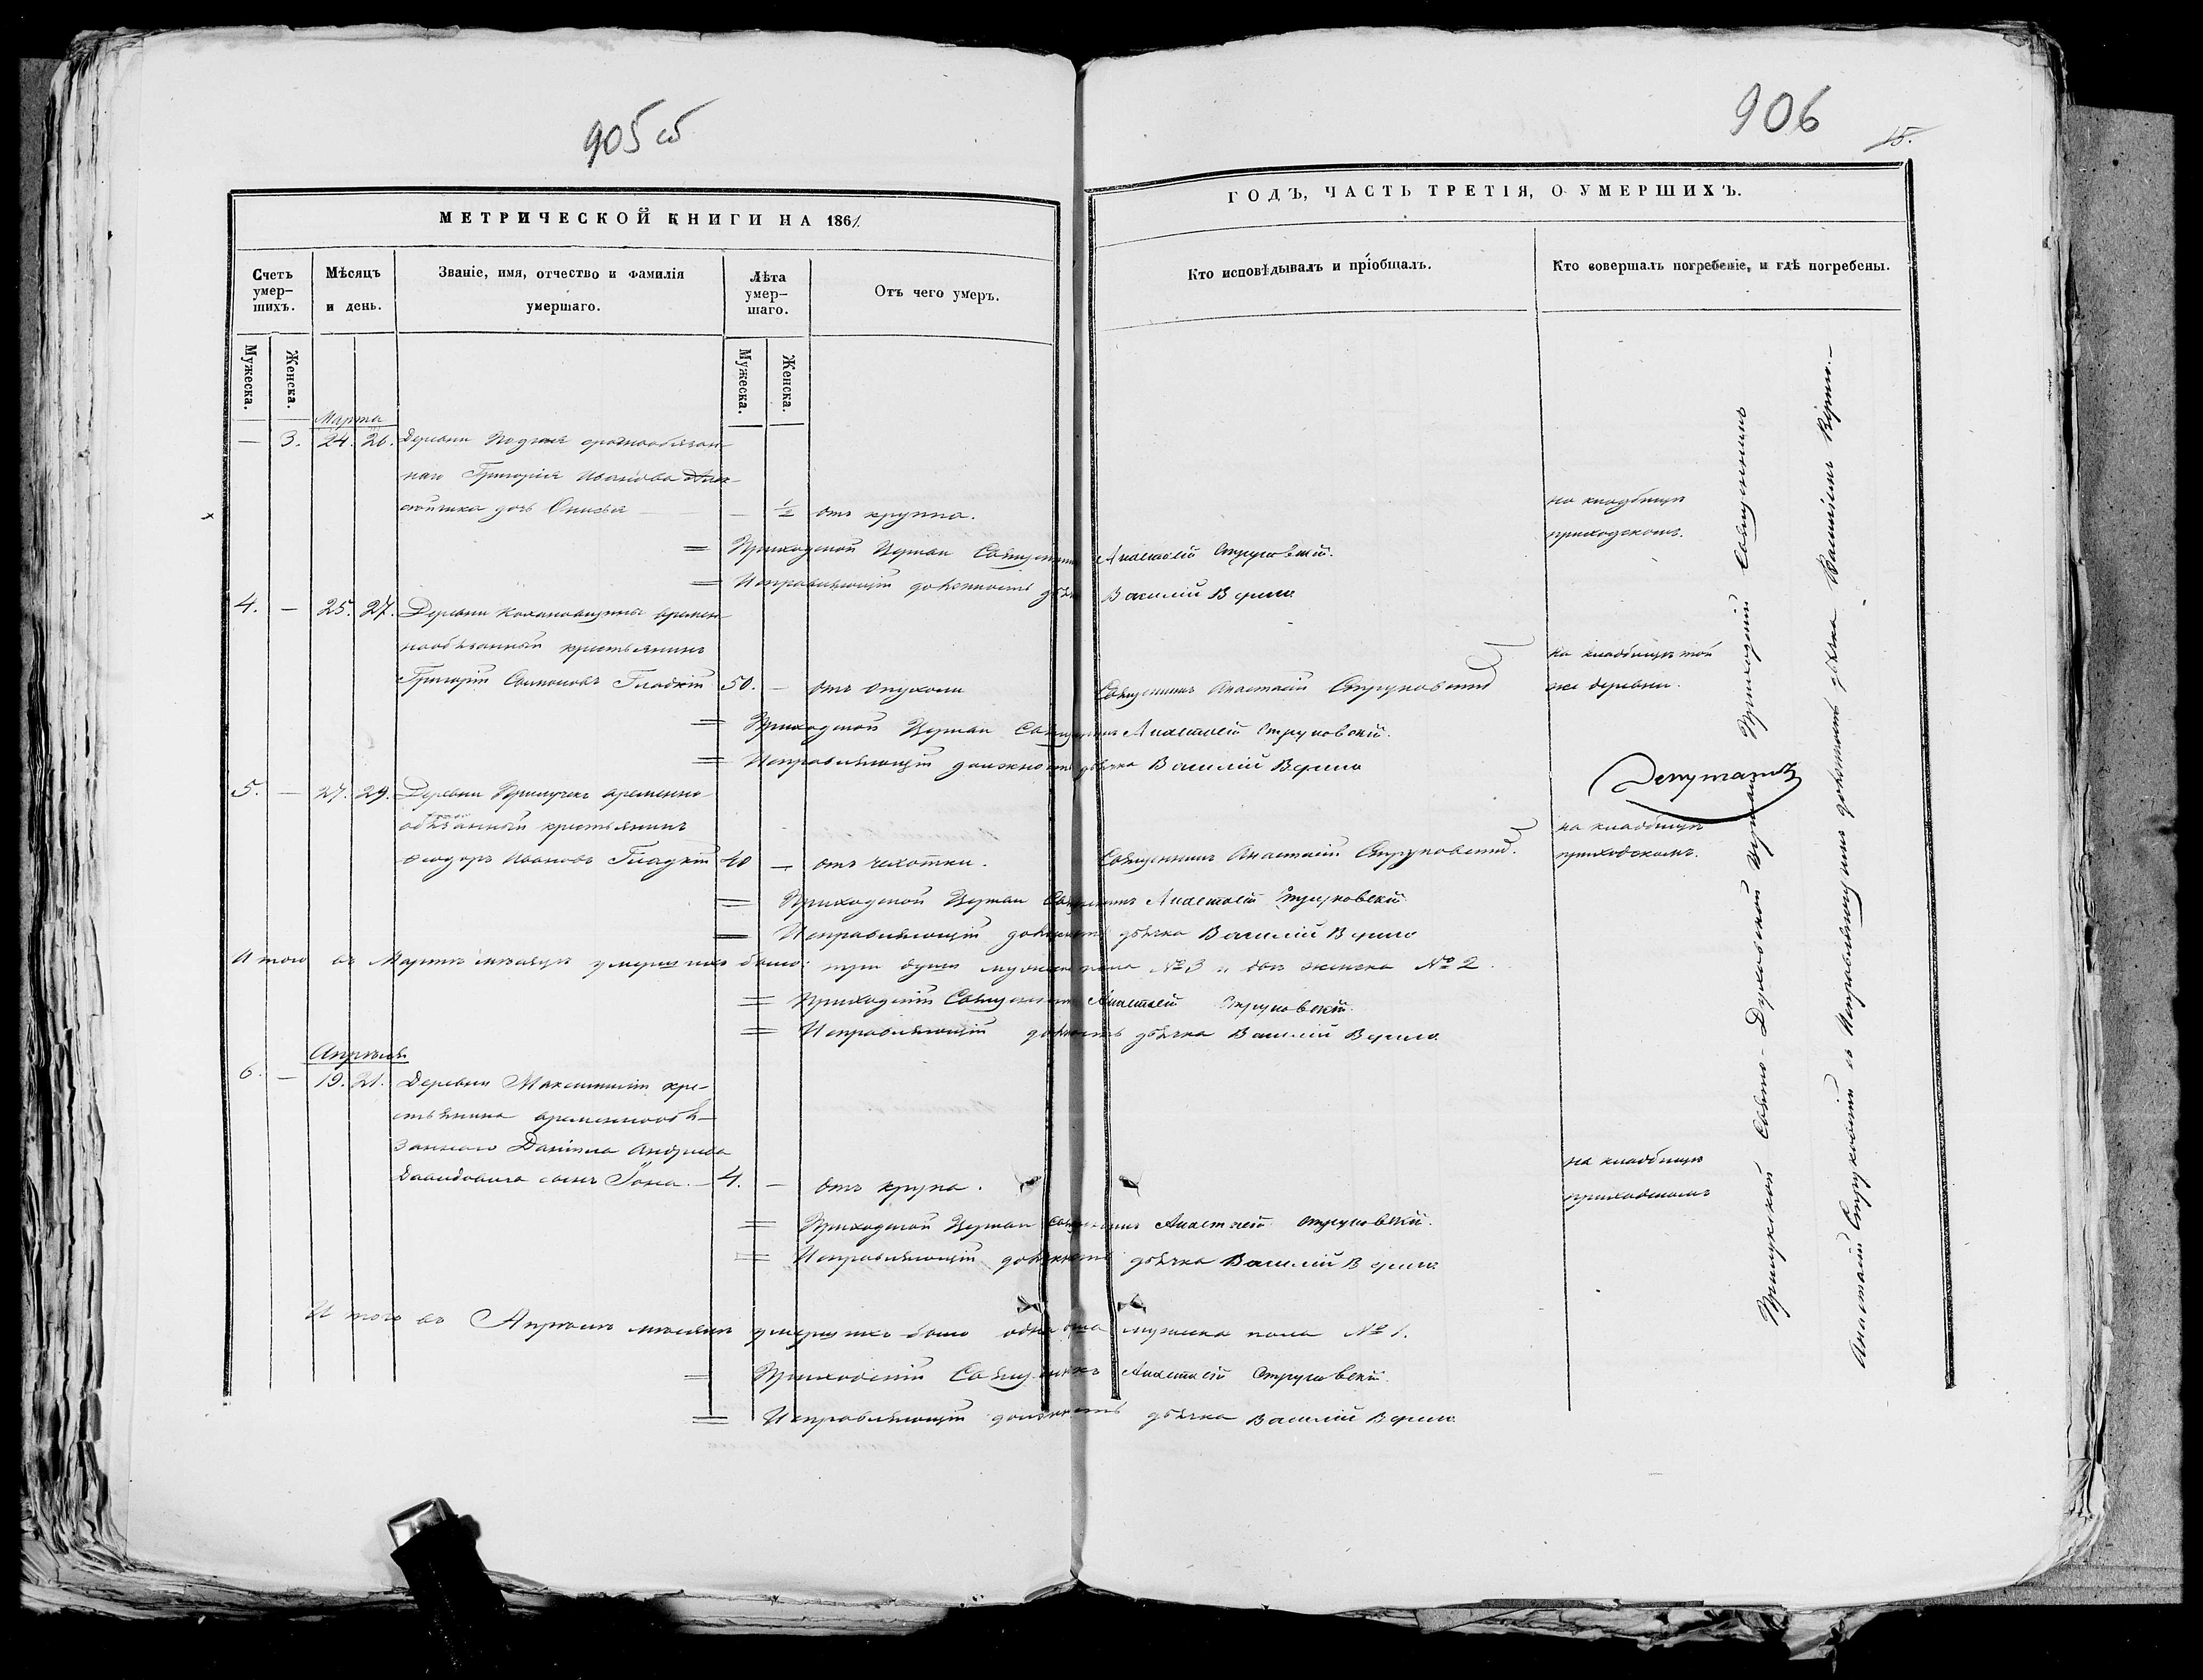 905 об
906
15.
МЕТРИЧЕСКОЙ КНИГИ НА 1861
ГОДЪ, ЧАСТЬ ТРЕТІЯ, О УМЕРШИХЪ.
Счетъ умер-шихъ.
Мѣсяцъ и день.
Званіе, имя, отчество и фамилія умершаго.
Лѣта умер-шаго.
Отъ чего умеръ.
Кто исповѣдывалъ и пріобщалъ.
Кто совершалъ погребеніе, и гдѣ погребены.
Мужеска.
Женска.
Мужеска.
Женска.
Марта
— 3. 24. 26. Деревни
наго Григорія Иванова
дочь — 1/2 отъ круппа. на кладбищѣ
приходскомъ.
= Приходской Церкви Священникъ Анастасій Струковскій.
= Исправляющій должность дьячка Василій
4. — 25. 27. Деревни времен-
нообязанный крестьянинъ
Григорій Гладкій 50. — отъ опухоли Священникъ Анастасій Струковскій на кладбищѣ той
же деревни.
= Приходской Церкви Священникъ Анастасій Струковскій.
= Исправляющій должность дьячка Василій
Депутатъ
5. — 27. 29. Деревни временно
обязанный крестьянинъ
Ѳеодоръ Ивановъ Гладкій 40 — отъ чахотки. Священникъ Анастасій Струковскій. на кладбищѣ
приходскомъ.
= Приходской Церкви Священникъ Анастасій Струковскій
= Исправляющій должность дьячка Василій
Итого въ Мартѣ мѣсяцѣ умершихъ было: три души мужеска пола № 3 и двѣ женска № 2.
= Приходскій Священникъ Анастасій Струковскій.
= Исправляющій должность дьячка Василій
Апрѣля
6. — 19. 21. Деревни кре-
стьянина временнообя-
заннаго Даніила Андреева
Давидовича сынъ Іона. — 4. — отъ крупа. на кладбищѣ
приходскомъ
= Приходской Церкви Священникъ Анастасій Струковскій.
= Исправляющій должность дьячка Василій
Итого въ Апрѣлѣ мѣсяцѣ умершихъ было одна душа мужеска пола № 1.
= Приходскій Священникъ Анастасій Струковскій.
= Исправляющій должность дьячка Василій
Свято-Духовской Церкви Приходскій Священникъ
Анастасій Струковскій съ Исправляющимъ должность дьячка Василіемъ